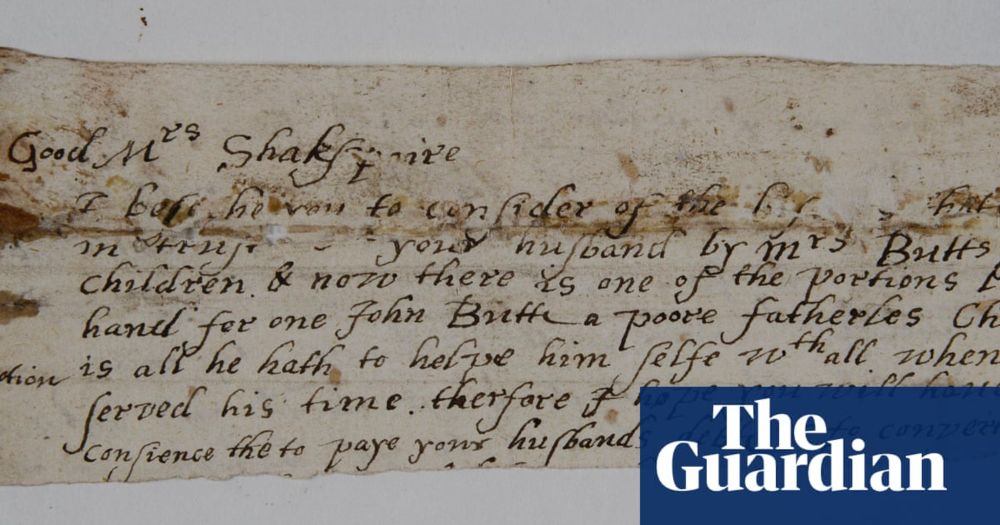 Good Mrs Shakspaire
I you to consider of the
in trust your husband by Mrs Butts
children & now there is one of the portions
hand for one John Butte a poore fatherles Ch
is all he hath to helpe him selfe wth all when
ction
served his time therfore I hope you will have
Consience the to paye your husbands
The
Guardian